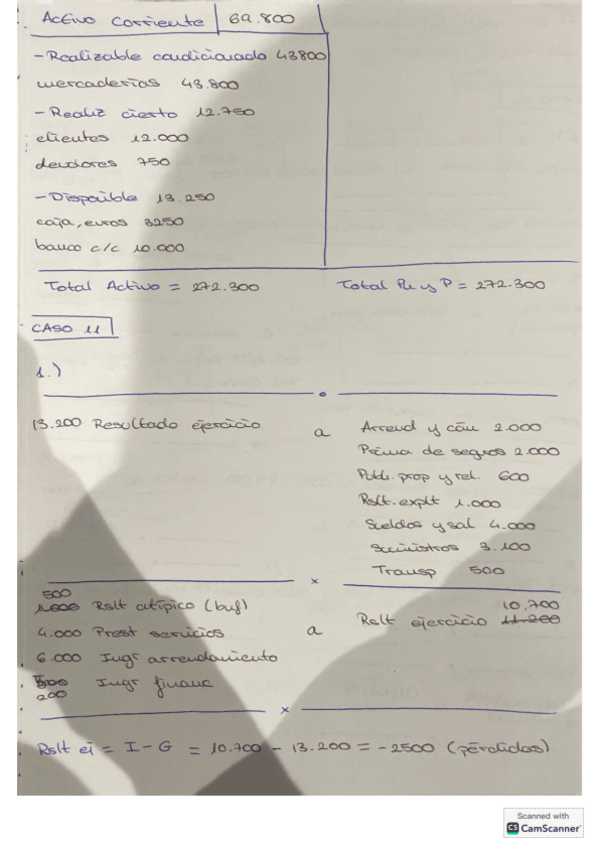 Activo Corriente 69.800
- Realizable condicionado 43800
mercaderías 43.800
- Realiz cierto 12.750
clientes 12.000
deudores 750
- Disponible 13.250
caja, euros 3250
banco c/c 10.000
Total Activo = 272.300
Total Pn y P = 272.300
CASO 11
1.)
13.200 Resultado ejercicio a Arrend y cán 2.000
Prima de seguros 2.000
Publi. prop y rel. 600
Rslt. explt 1.000
Sueldos y sal 4.000
Suministros 3.100
Transp 500
x
500
1.000 Rslt atípico (bnf) a Rslt ejercicio 11.200
10.700
4.000 Prest servicios
6.000 Ingr arrendamiento
Ingr financ
200
x
Rslt ej = I - G = 10.700 - 13.200 = -2500 (pérdidas)
Scanned with
CS CamScanner